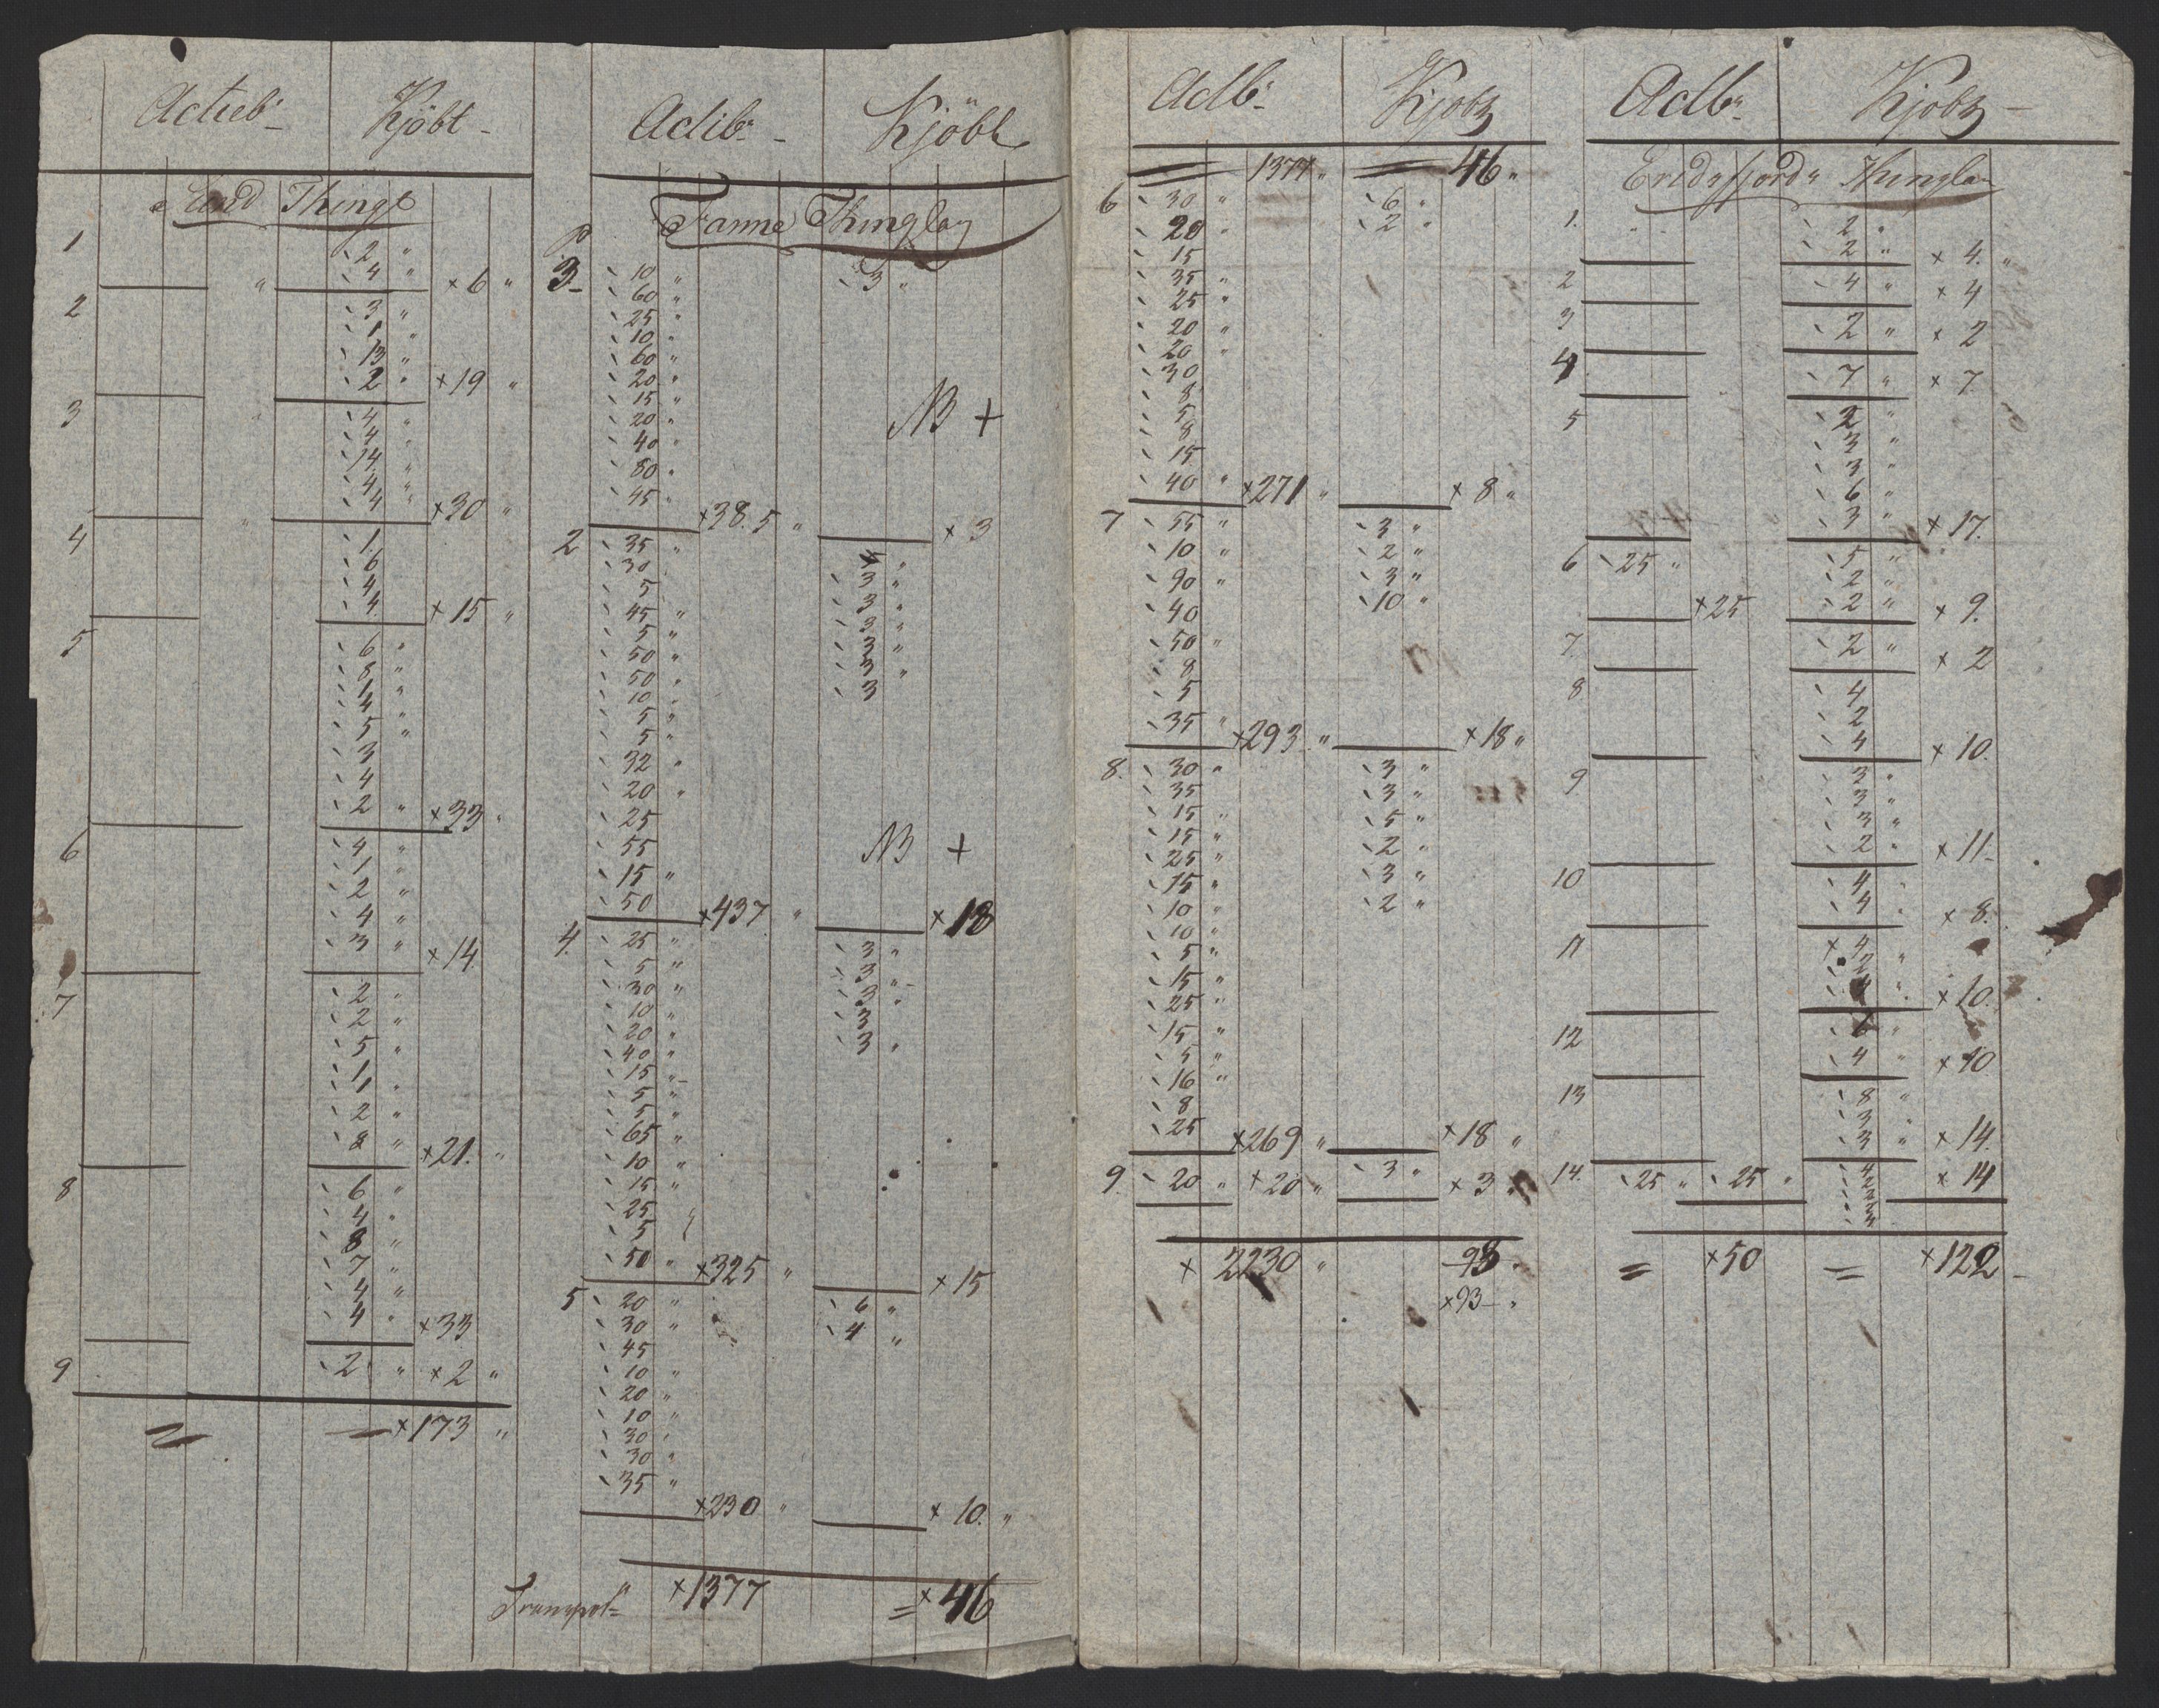 Kjöbt
Sund Thingl
1
2 "
4 " × 6 "
2
3 "
1 "
13 "
2 " × 19 "
3
4 "
4
14 "
4 "
4 " × 30 "
4
1
6
4
4 × 15 "
5
6 "
8 "
1 "
4 "
5 "
3
4
2 " × 33 "
6
4 "
1 "
2 "
4 "
3 " × 14
7
2 "
2 "
5 "
1
1 "
2 "
8 " × 21. "
8
6 "
4 "
8 "
7 "
4 "
4 " × 33
9 2 " × 2 "
= × 173 "
Adib: Kjöbt
Thinglag
3 10 " 3 "
60 "
25 "
10 "
60 "
20 "
15 "
20 " NB +
40 "
80 "
45 "
× 38.5 " × 3
2 35 "
30 "
5 3 "
45 " 3 "
5 " 3 "
50 " 3 "
50 " 3 "
10 " 3
5 "
5 "
32 "
20 "
25
55 NB +
15 "
50 × 437 " × 18
4. 25 " 3 "
5 " 3 "
30 " 3 "
10 " 3
20 " 3 "
40 "
15 "
5 "
5 "
65 "
10 "
15 "
25 "
5
50 " × 325 " × 15
5 20 " 6 "
30 " 4 "
45
10 "
20 "
10 "
30 "
30 "
35 "
× 230 " × 10. "
Transpot × 1377 = × 46
Adb: Kjobz
1377 " 46 "
6 30 " 6 "
20 " 2 "
15
35 "
25 "
20 "
20 "
30
8
5
8
15
40 " × 271 " × 8 "
7 55 " 3 "
10 " 2 "
90 " 3 "
40 10 "
50 "
8
5
35 " × 293 " × 18 "
8. 30 " 3 "
35 3 "
15 " 5 "
15 " 2 "
25 " 3 "
15 " 2 "
10 "
10 "
5 "
15 "
25 "
15 "
5 "
16 "
8
25 × 269 " × 18 "
9. 20 " × 20 " 3 " × 3 "
× 2230 " 98
× 93 "
Adb: Kjobz
Thingla
1. 2 "
2 " × 4. "
2 4 " × 4
3 2 " × 2
4 7 " × 7
5 2 "
3 "
3 "
6 "
3 " × 17.
6 25 " 5 "
2 "
× 25 2 " × 9.
7 2 " × 2
8 4
2
4 × 10.
9 3 "
3 "
3 "
2 " × 11
10 4 "
4 " × 8.
11 × 4
2 "
4 " × 10.
12 6 "
4 " × 10
13 8 "
3
3 " × 14.
14. 25 " 25 " 4 × 14
2
2
3
3
= × 50 = × 122